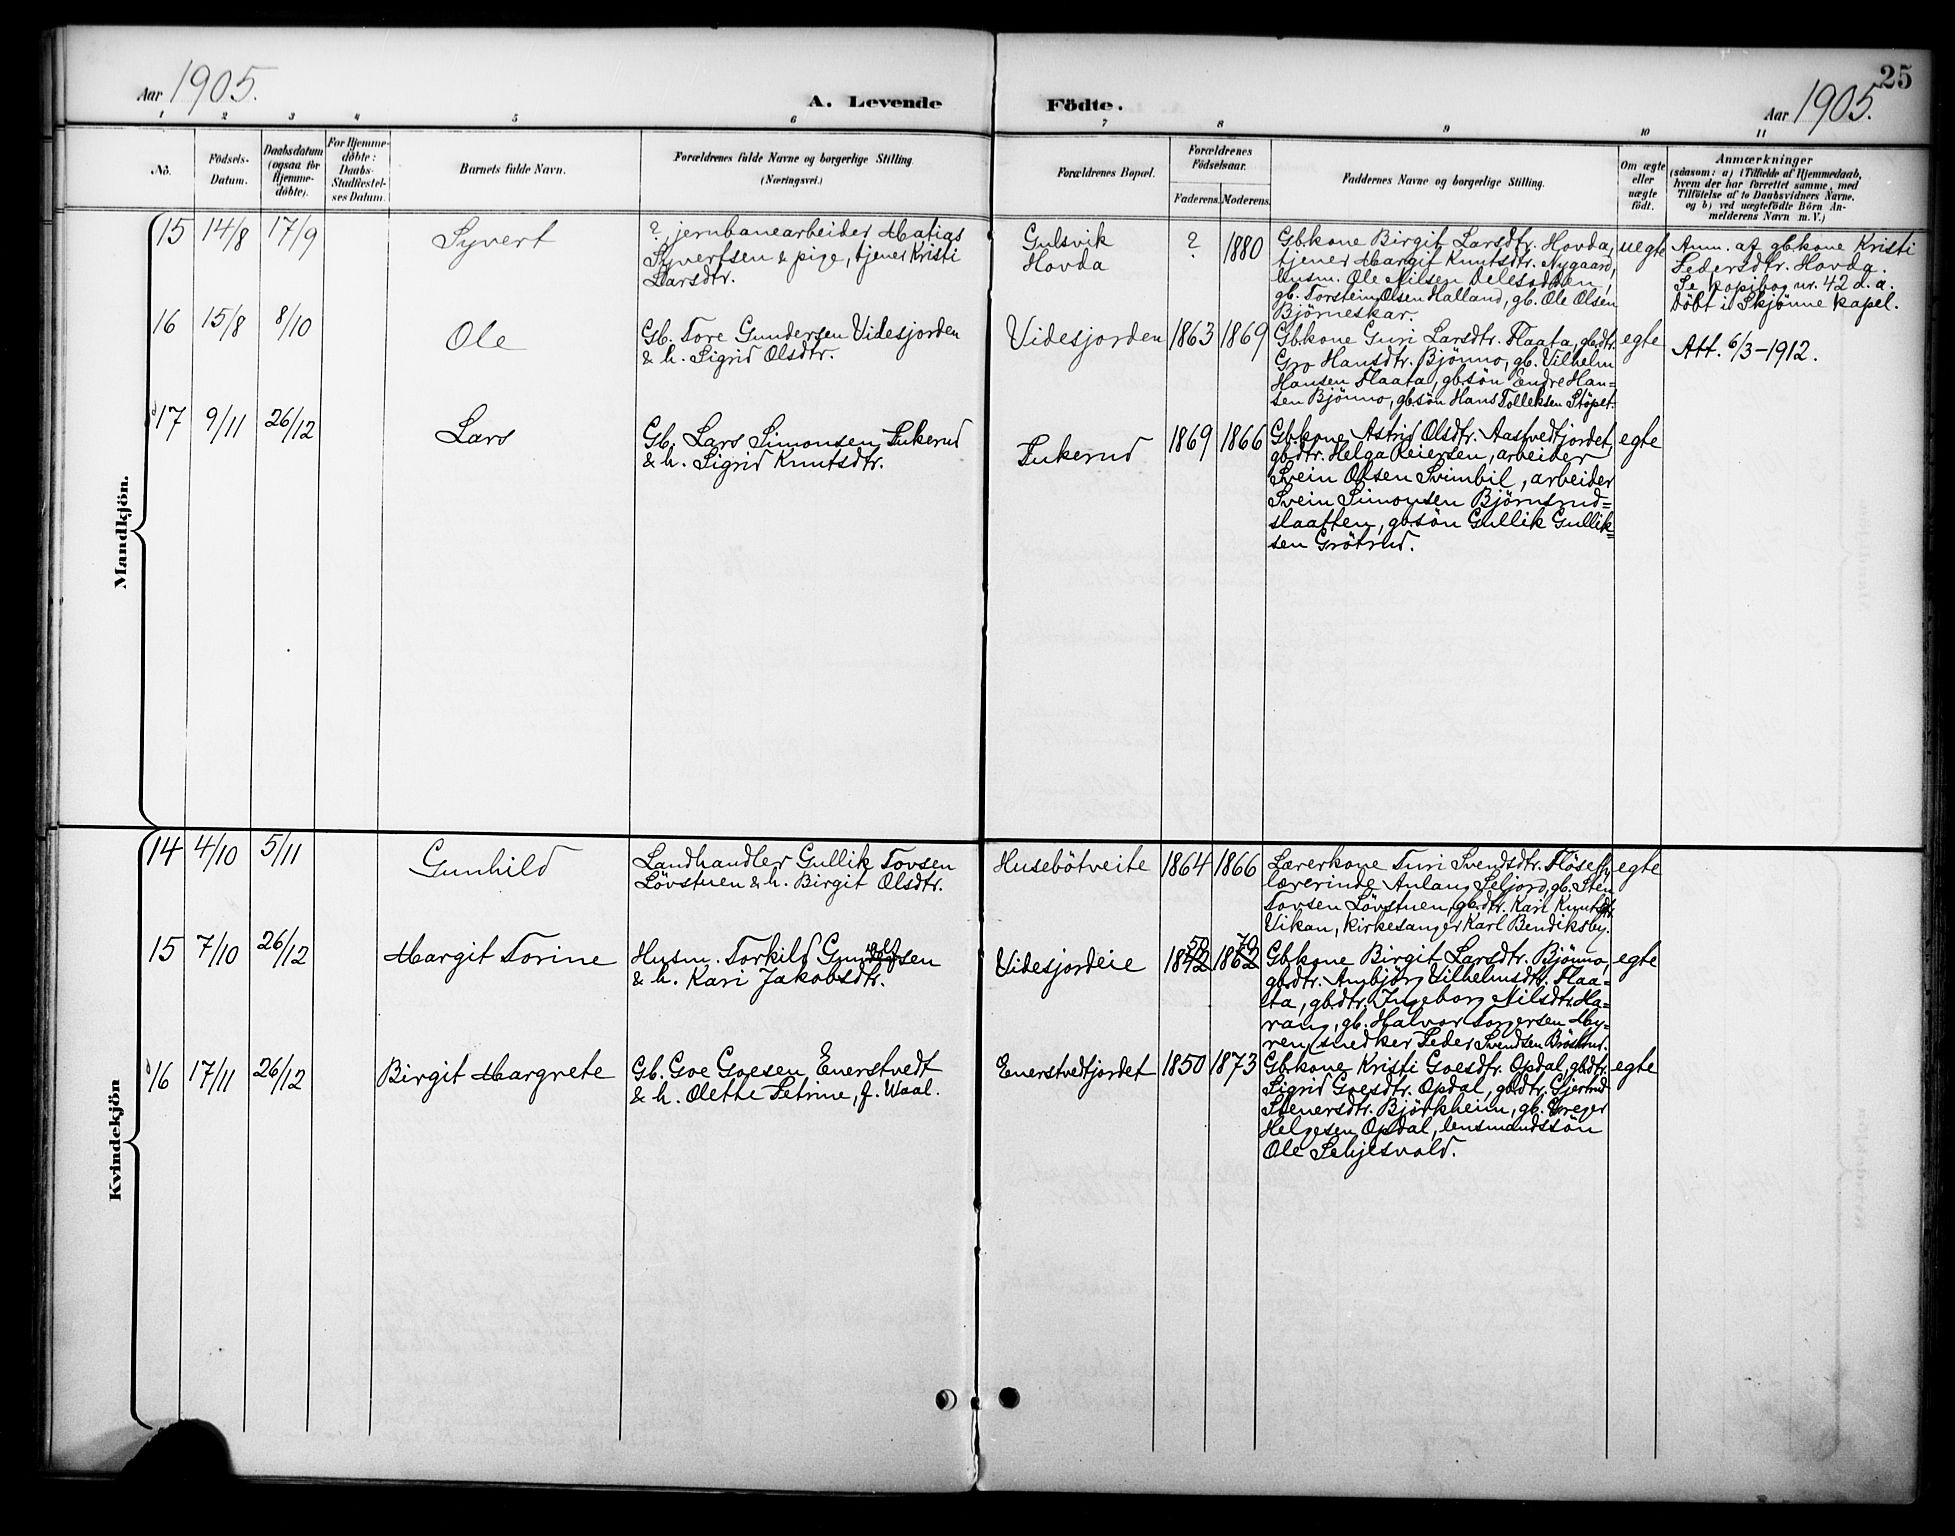 Aar 1905.
A. Levende Födte.
25
Aar 1905.
1 2 3 4 5 6 7 8 9 10 11
No.
Födsels-
Datum.
Daabsdatum
(ogsaa for
Hjemme-
döbte).
For Hjemme-
döbte:
Daabs-
Stadfæstel-
ses Datum.
Barnets fulde Navn.
Forældrenes fulde Navne og borgerlige Stilling.
(Næringsvei.)
Forældrenes Bopæl.
Forældrenes
Födselsaar.
Faderens. Moderens.
Faddernes Navne og borgerlige Stilling.
Om ægte
eller
uægte
födt.
Anmærkninger
(saasom: a) i Tilfælde af Hjemmedaab,
hvem der har forrettet samme, med
Tilföielse af to Daabsvidners Navne.
og b) ved uægtefödte Börn An-
melderens Navn m. V.)
Mandkjön.
15 14/8 17/9
Syvert
? jernbanearbeider Matias
Syvertsen & pige, tjener Kristi
Larsdtr.
Gulsvik
Hovda
? 1880
Gbkone Birgit Larsdtr. Hovda,
tjener Margit Knutsdtr. Nygaard,
husm. Ole Nilsen
gb. Torstein Olsen Halland, gb. Ole Olsen
Björneskar.
uegte
Anm. af gbkone Kristi
Pedersdtr. Hovda.
Se kopibog nr. 42 d. a.
Döbt i Skjönne kapel.
16 15/8 8/10
Ole
Gb. Tore Gundersen Videsjorden
& h. Sigrid Olsdtr.
Videsjorden
1863 1869
Gbkone Guri Larsdtr. Flaata, gbdtr.
Gro Hansdtr. Björmo, gb. Vilhelm
Hansen Flaata, gbsön Endre Han=
sen Björmo, gbsön Hans Tolleksen Stöpet.
egte
Att. 6/3-1912.
17 9/11 26/12
Lars
Gb. Lars Simonsen Fukerud
& h. Sigrid Knutsdtr.
Fukerud
1869 1866
Gbkone Astrid Olsdtr. Aasivedtjordet,
gbdtr. Helga Reiersen, arbeider
Svein Olsen Svimbil, arbeider
Svein Simonsen Björnsrud=
slaatten, gbsön Gullik Gullik=
sen Grötrud.
egte
Kvindekjön
14 4/10 5/11
Gunhild
Landhandler Gullik Tovsen
Lövstuen & h. Birgit Olsdtr.
Husebötveite
1864 1866
Lærerkone Turi Svendsdtr. Flöseby,
lærerinde Anlaug Seljord, gb. Sten
Tovsen Lövstuen, gbdtr. Kari Knutsdtr.
Vikan, kirkesanger Karl Bendiksby.
egte
15 7/10 26/12
Margit Torine
Husm. Torkild Gundersen
& h. Kari Jakobsdtr.
Videsjordeie
50 70
1842 1862
Gbkone Birgit Larsdtr. Björmo,
gbdtr. Ambjör Vilhelmsdtr. Flaa=
ta, gbdtr. Ingeborg Nilsdtr. Ha=
rang, gb. Halvor Torgersen My=
ren, snedker Peder Svendsen Bröstrud.
egte
16 17/11 26/12
Birgit Margrete
Gb. Goe Goesen Enerstvedt
& h. Olette Petrine, f. Waal.
Enerstvedtjordet
1850 1873
Gbkone Kristi Goesdtr. Opdal, gbdtr.
Sigrid Goesdtr. Opdal, gbdtr. Gjertrud
Stenersdtr. Björkheim, gb. Greger
Helgesen Opdal, lensmandssön
Ole Sehjesvold.
egte